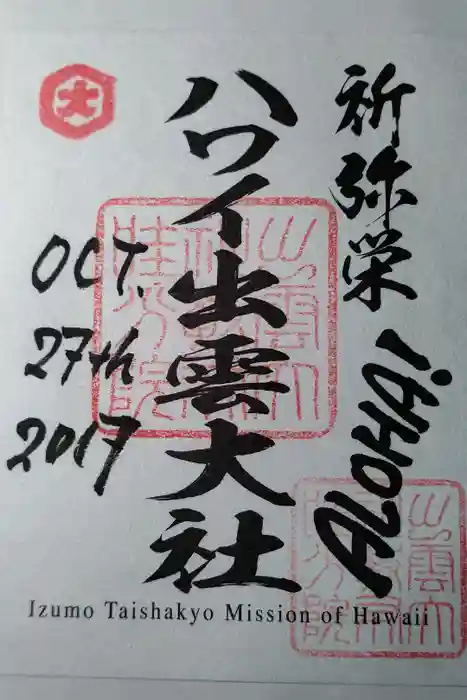 祈弥栄
ALOHA!
ハワイ出雲大社
OCT.
27th
2017
大
Izumo Taishakyo Mission of Hawaii